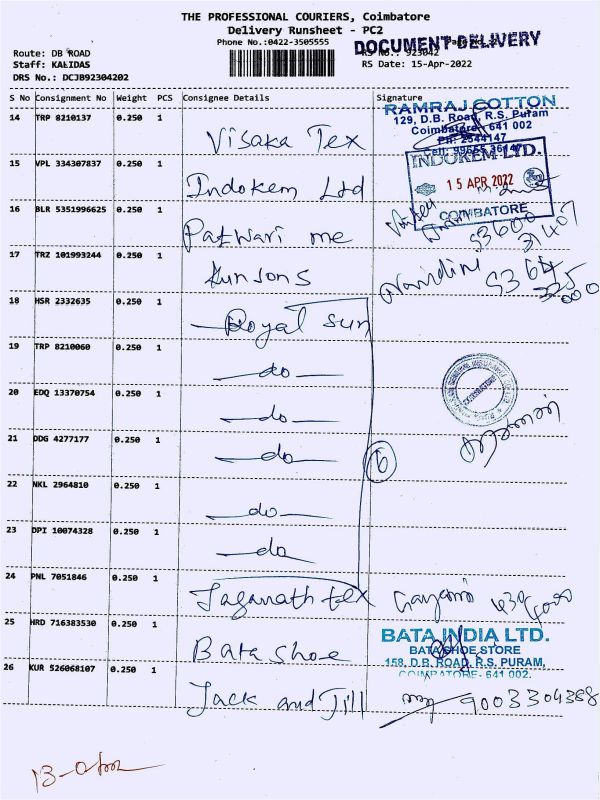 THE PROFESSIONAL COURIERS, Coimbatore
Delivery Runsheet - PC2
Phone No.:0422-3505555
DOCUMENT DELIVERY
Route: DB ROAD
Staff: KALIDAS
RS Date: 15-Apr-2022
DRS No.: DCJB92304202
S No Consignment No Weight PCS Consignee Details Signature
14 TRP 8210137 0.250 1 Visaka Tex
RAMRAJ COTTON
129, D.B. Road, R.S. Puram
Coimbatore - 641 002
Ph: 2544147
15 VPL 334307837 0.250 1 Indokem Ltd
INDOKEM LTD.
15 APR 2022
COIMBATORE
16 BLR 5351996625 0.250 1 Patwari me
17 TRZ 101993244 0.250 1 Kunsons
18 HSR 2332635 0.250 1 Royal Sun
19 TRP 8210060 0.250 1 do
20 EDQ 13370754 0.250 1 do
21 DDG 4277177 0.250 1 do 6
22 NKL 2964810 0.250 1 do
23 DPI 10074328 0.250 1 do
24 PNL 7051846 0.250 1 Jaganath tex
25 HRD 716383530 0.250 1 Bata Shoe
BATA INDIA LTD.
BATA SHOE STORE
158, D.B. ROAD, R.S. PURAM,
COIMBATORE- 641 002.
26 KUR 526068107 0.250 1 Jack and Jill 9003304388